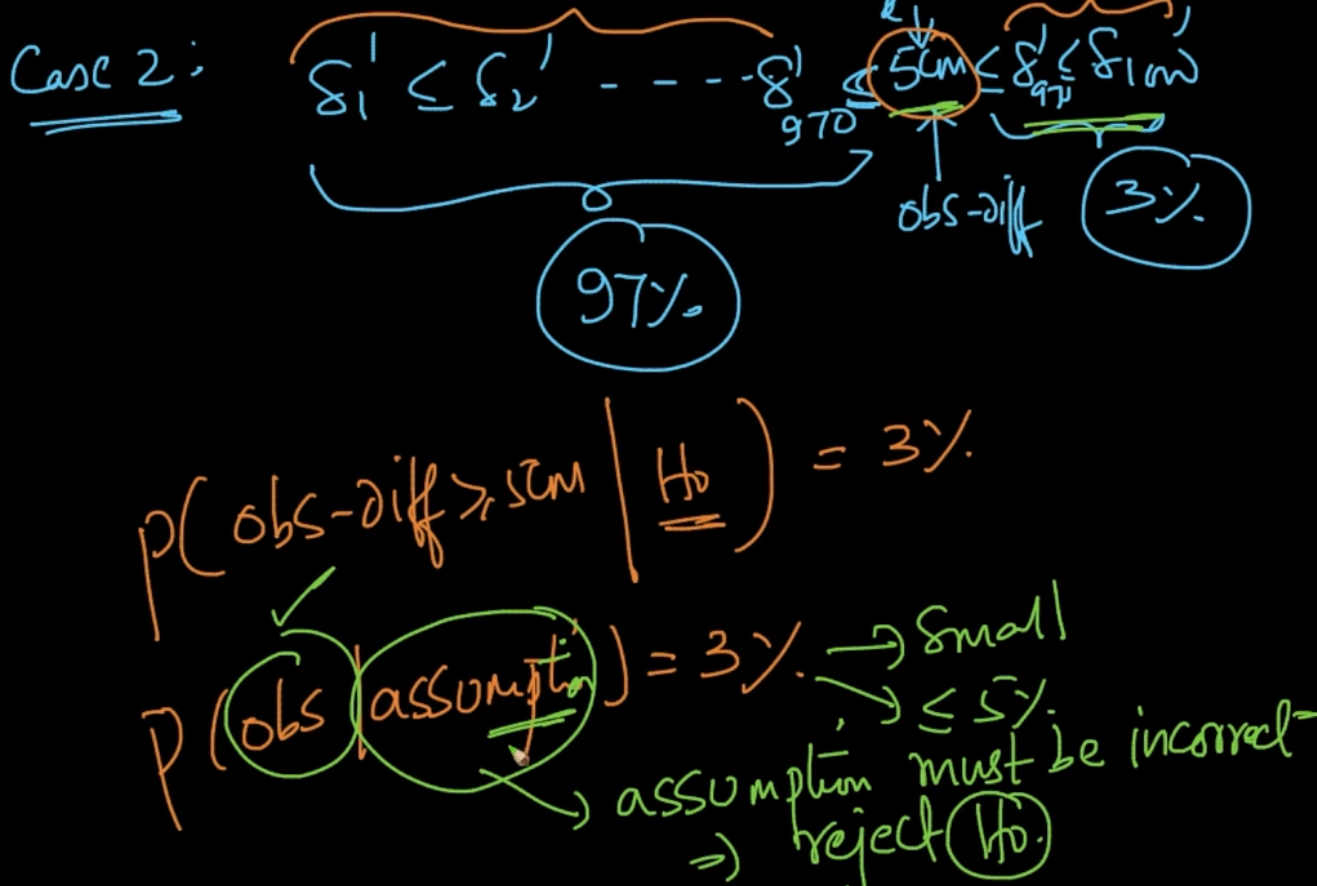 Case 2:
δ₁' ≤ δ₂' - - - - δ'₉₇₀ ≤ 5cm ≤ δ'₉₇₁ ≤ δ'₁₀₀₀
obs-diff
3%
97%
P(obs-diff ≥ 5cm | H₀) = 3%
P(obs | assumption) = 3% → small
→ ≤ 5%
→ assumption must be incorrect
⇒ reject H₀.